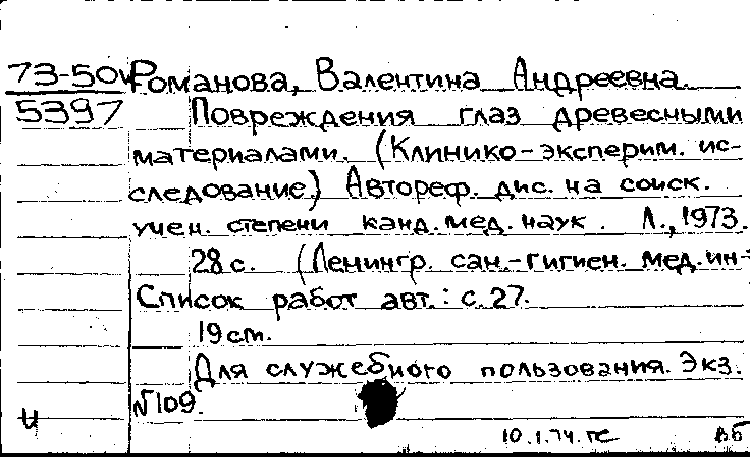 73-50 Романова, Валентина Андреевна.
5397 Повреждения глаз древесными
материалами. (Клинико-эксперим. ис-
следование) Автореф. дис. на соиск.
учен. степени канд. мед. наук. Л., 1973.
28 с. (Ленингр. сан.-гигиен. мед. ин-т
Список работ авт.: с. 27.
19 см.
Для служебного пользования. Экз.
№109.
и
10.1.74. пс вб